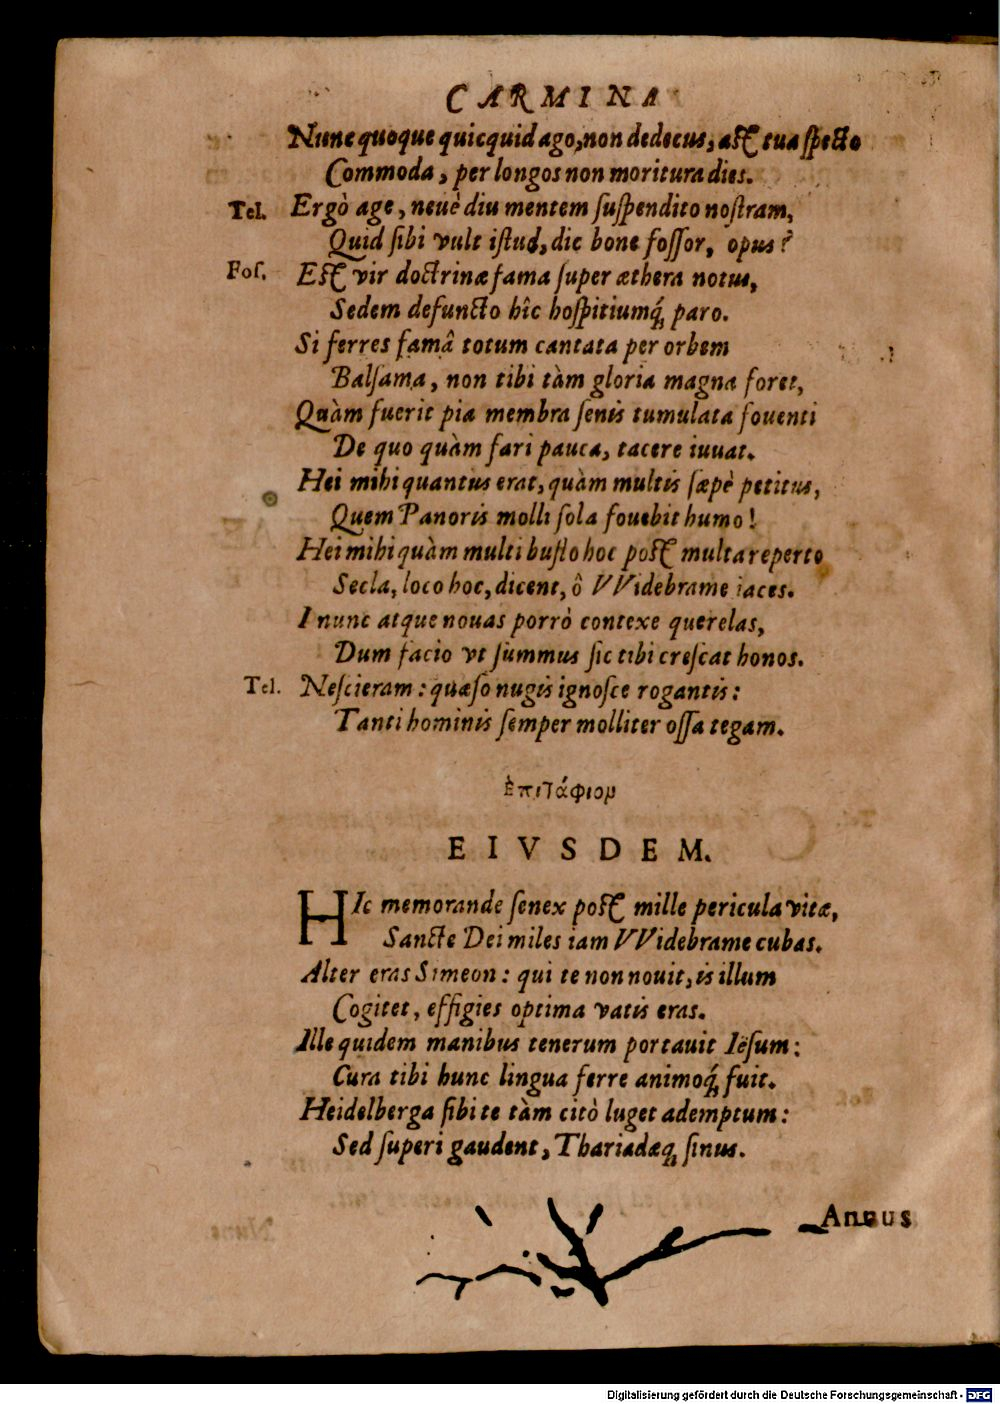 CARMINA
Nunc quoque quicquid ago, non dedecus, ast tua specto
Commoda, per longos non moritura dies.
Tel. Ergò age, neuè diu mentem suspendito nostram,
Quid sibi vult istud, dic bone fossor, opus?
Fos. Est vir doctrinæ fama super æthera notus,
Sedem defuncto hîc hospitiumq́; paro.
Si ferres famâ totum cantata per orbem
Balsama, non tibi tàm gloria magna foret,
Quàm fuerit pia membra senis tumulata fouenti
De quo quàm fari pauca, tacere iuuat.
Hei mihi quantus erat, quàm multis sæpè petitus,
Quem Panoris molli sola fouebit humo!
Hei mihi quàm multi busto hoc post multa reperto
Secla, loco hoc, dicent, ô VVidebrame iaces.
I nunc atque nouas porrò contexe querelas,
Dum facio vt summus sic tibi crescat honos.
Tel. Nescieram: quæso nugis ignosce rogantis:
Tanti hominis semper molliter ossa tegam.
ἐπιτάφιον
EIVSDEM.
HIc memorande senex post mille pericula vitæ,
Sancte Dei miles iam VVidebrame cubas.
Alter eras Simeon: qui te non nouit, is illum
Cogitet, effigies optima vatis eras.
Ille quidem manibus tenerum portauit Iësum:
Cura tibi hunc lingua ferre animoq́; fuit.
Heidelberga sibi te tàm citò luget ademptum:
Sed superi gaudent, Thariadæq; sinus.
Annus
Digitalisierung gefördert durch die Deutsche Forschungsgemeinschaft - DFG